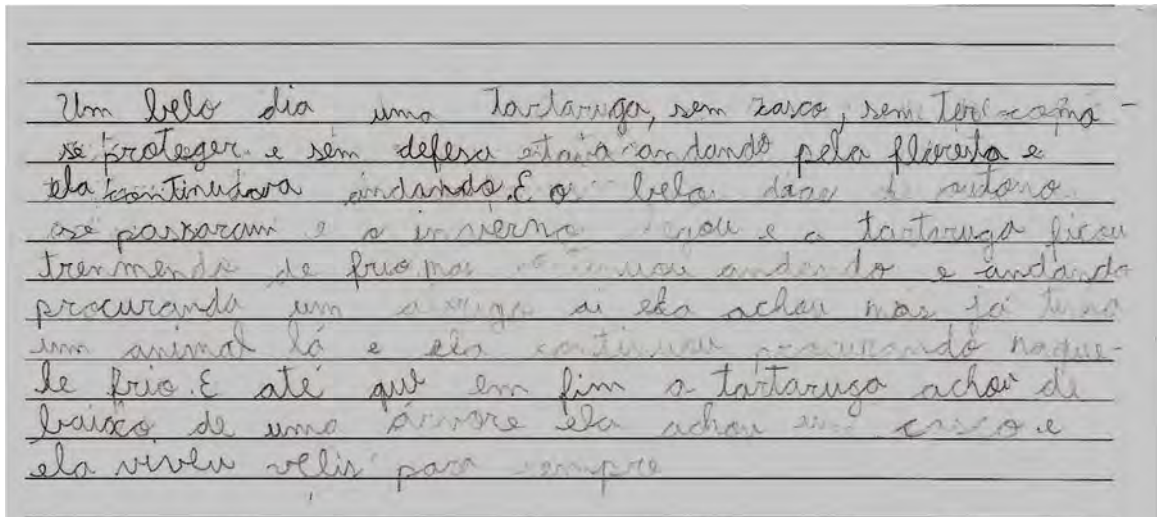 Um belo dia uma tartaruga, sem casco, sem ter como
se proteger e sem defesa estava andando pela floresta e
ela continuava andando. E os belo dias de outono
se passaram e o inverno e a tartaruga ficou
tremendo de frio mas continuou andando e andando
procurando um abrigo ai ela achou mas já tinha
um animal lá e ela continuou procurando naque-
le frio. E até que em fim a tartaruga achou de
baixo de uma árvore ela achou um casco e
ela viveu velis para sempre